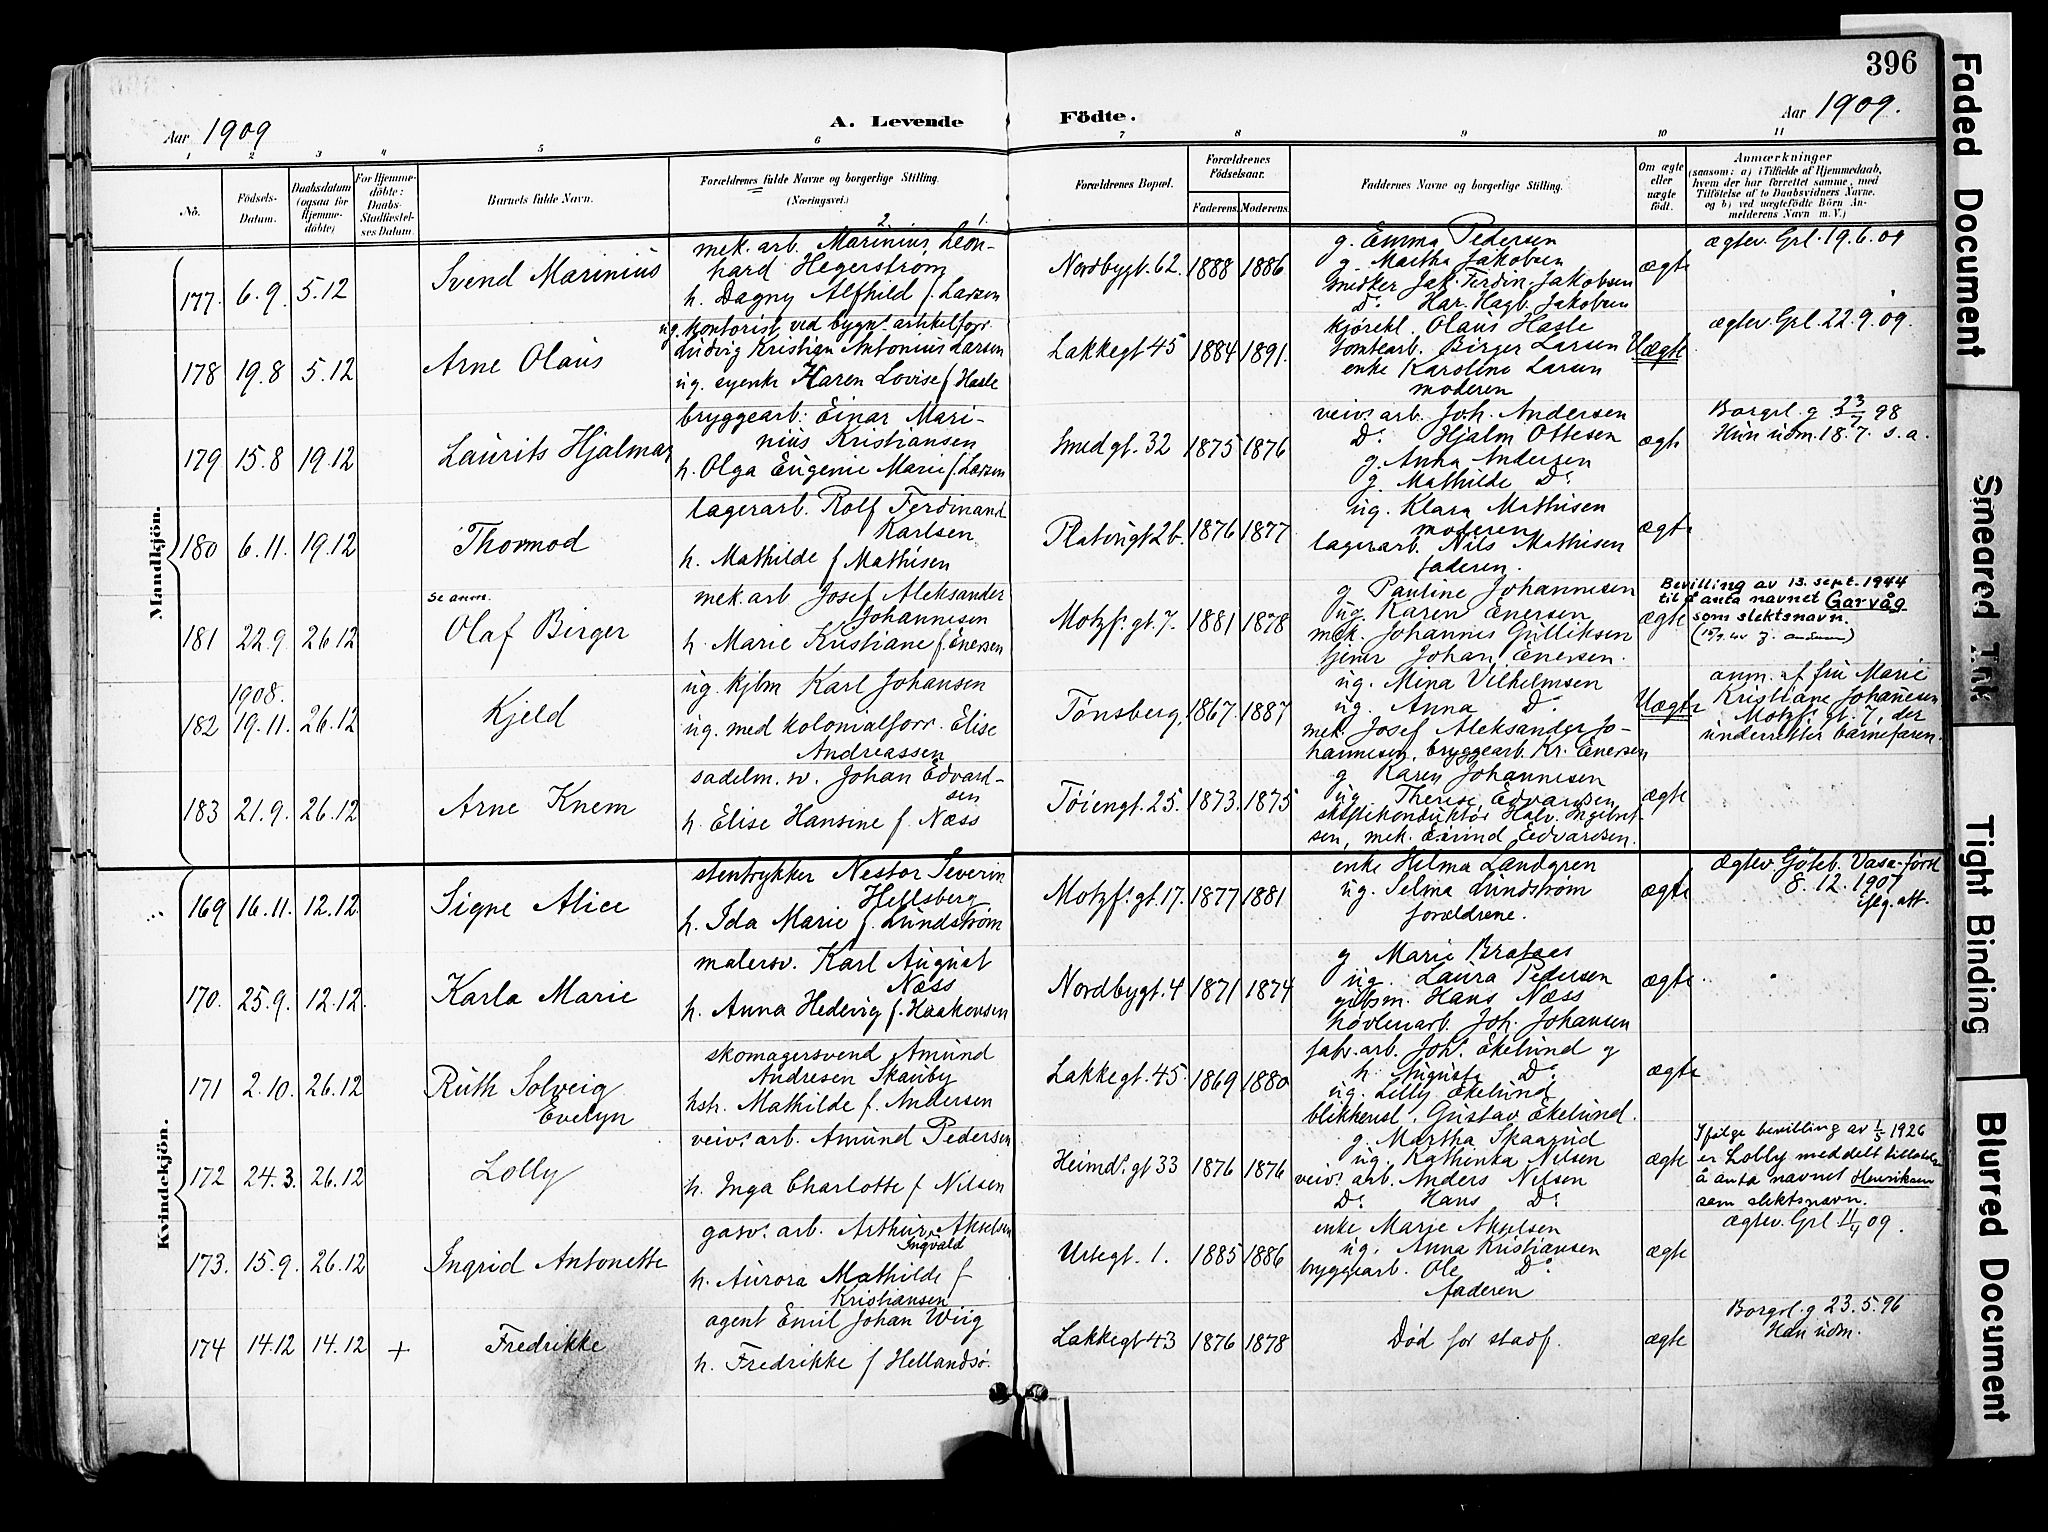 396
Aar 1909
A. Levende Födte.
Aar 1909.
1 2 3 4 5 6 7 8 9 10 11
No.
Födsels-Datum.
Daabsdatum (ogsaa for Hjemme-döbte)
For Hjemme-döbte: Daabs-Stadfæstel-ses Datum.
Barnets fulde Navn.
Forældrenes fulde Navne og borgerlige Stilling.
(Næringsvei.)
Forældrenes Bopæl.
Forældrenes Födselsaar.
Faderens. Moderens.
Faddernes Navne og borgerlige Stilling.
Om ægte eller uægte födt.
Anmærkninger
(saasom: a) i Tilfælde af Hjemmedaab,
hvem der har forrettet samme, med
Tilföielse af to Daabsvidners Navne,
og b) ved uægtefödte Börn An-
melderens Navn m. V.)
Mandkjön.
177. 6.9. 5.12 Svend Marinius
mek. arb. Marinius Leon-
hard Hegerström
h. Dagny Alfhild f. Larsen
Nordbygt. 62. 1888 1886
g. Emma Pedersen
g. Martha Jakobsen
snedker Jak. Ferdin. Jakobsen
Do Har. Hagb. Jakobsen
ægte
ægtev. Grl. 19.6.09
178 19.8 5.12 Arne Olaus
ug. kontorist ved bygn. artikelforr.
Ludvig Kristian Antonius Larsen
ug. syerske Karen Lovise f. Hasle
Lakkegt 45 1884 1891.
kjørekl. Olaus Hasle
tomtearb. Birger Larsen
enke Karoline Larsen
moderen
Uægte
ægtev. Grl. 22.9.09.
179 15.8 19.12 Laurits Hjalmar
bryggearb. Einar Mari-
nius Kristiansen
h. Olga Eugenie Marie f. Larsen
Smedgt. 32 1875 1876
veiv. arb. Joh. Andersen
Do Hjalm Ottesen
g. Anna Andersen
g. Mathilde Do
ægte
Borgerl. g. 23/7 98
Hun udm. 18.7. s.a.
180 6.11. 19.12 Thormod
lagerarb. Rolf Ferdinand
Karlsen
h. Mathilde f Mathisen
Platougt 2b. 1876 1877
ug. Klara Mathisen
moderen
lagerarb. Nils Mathisen
faderen.
ægte
181 22.9. 26.12 Se anm. Olaf Birger
mek. arb Josef Aleksander
Johannesen
h. Marie Kristiane f. Enersen
Motzf. gt. 7. 1881 1878
g Pauline Johannesen
ug. Karen Enersen
mek. Johannes Gulliksen
tjener Johan Enersen.
ægte
Bevilling av 13. sept. 1944
til å anta navnet Garvåg
som slektsnavn.
182 1908. 19.11. 26.12 Kjeld
ug. kjbm Karl Johansen
ug. med kolonialforr. Elise
Andreassen
Tönsberg. 1867. 1887
ug. Mina Vilhelmsen
ug. Anna Do
mek. Josef Aleksander Jo-
hannesen, bryggearb. Kr. Enersen
Uægte
anm. af fru Marie
Kristiane Johannesen
Motzf. gt. 7, der
underretter barnefaren.
183 21.9. 26.12 Arne Knem
sadelm. sv. Johan Edvard-
sen
h. Elise Hansine f. Næss
Töiengt. 25. 1873. 1875
g Karen Johannesen
ug. Therese Edvardsen
skiftekonduktör Halv. Ingebret-
sen, mek. Eivind Edvardsen.
ægte
Kvindekjön.
169 16.11. 12.12. Signe Alice
stentrykker Nestor Severin
Hellsberg
h. Ida Marie f. Lundström
Motzf. gt. 17. 1877 1881
enke Helma Landgren
ug. Selma Lundström
forældrene.
ægte
ægtev. Göteb. Vasa förs.
8.12.1907
iflg. att.
170. 25.9. 12.12. Karla Marie
malersv. Karl August
Næss
h. Anna Hedevig f. Haakensen
Nordbygt. 4 1871 1874
g Marie Brataas
ug. Laura Pedersen
Hans Næss
høvleriarb. Joh. Johansen
ægte
171 2.10. 26.12 Ruth Solveig
Evelyn
skomagersvend Amund
Andresen Skauby
hstr. Mathilde f. Andersen
Lakkegt. 45. 1869 1880
fabr. arb. Joh. Ekelund g
h Augusta Do
ug. Lilly Ekelund
blikkensl. Gustav Ekelund.
ægte
172 24.3. 26.12 Lolly
veiv. arb. Amund Pedersen
h. Inga Charlotte f Nilsen
Heimd. gt 33 1876 1876
g. Martha Skaarud
ug. Kathinka Nilsen
veiv. arb. Anders Nilsen
Do Hans Do
ægte
Ifølge bevilling av 1/5 1926
er Lolly meddelt tillatelse
å anta navnet Henriksen
som slektsnavn.
173. 15.9. 26.12 Ingrid Antonette
gasv. arb. Arthur Akselsen
Ingvald
h. Aurora Mathilde f
Kristiansen
Urtegt. 1. 1885 1886
enke Marie Akselsen
ug. Anna Kristiansen
bryggearb. Ole Do
faderen
ægte
174 14.12 14.12 + Fredrikke
agent Emil Johan Wiig
h. Fredrikke f Hellandsø.
Lakkegt 43 1876 1878
Død før stadf.
ægte
Borgerl. g 23.5.96
Han udm.
Faded Document
Smeared Ink
Tight Binding
Blurred Document